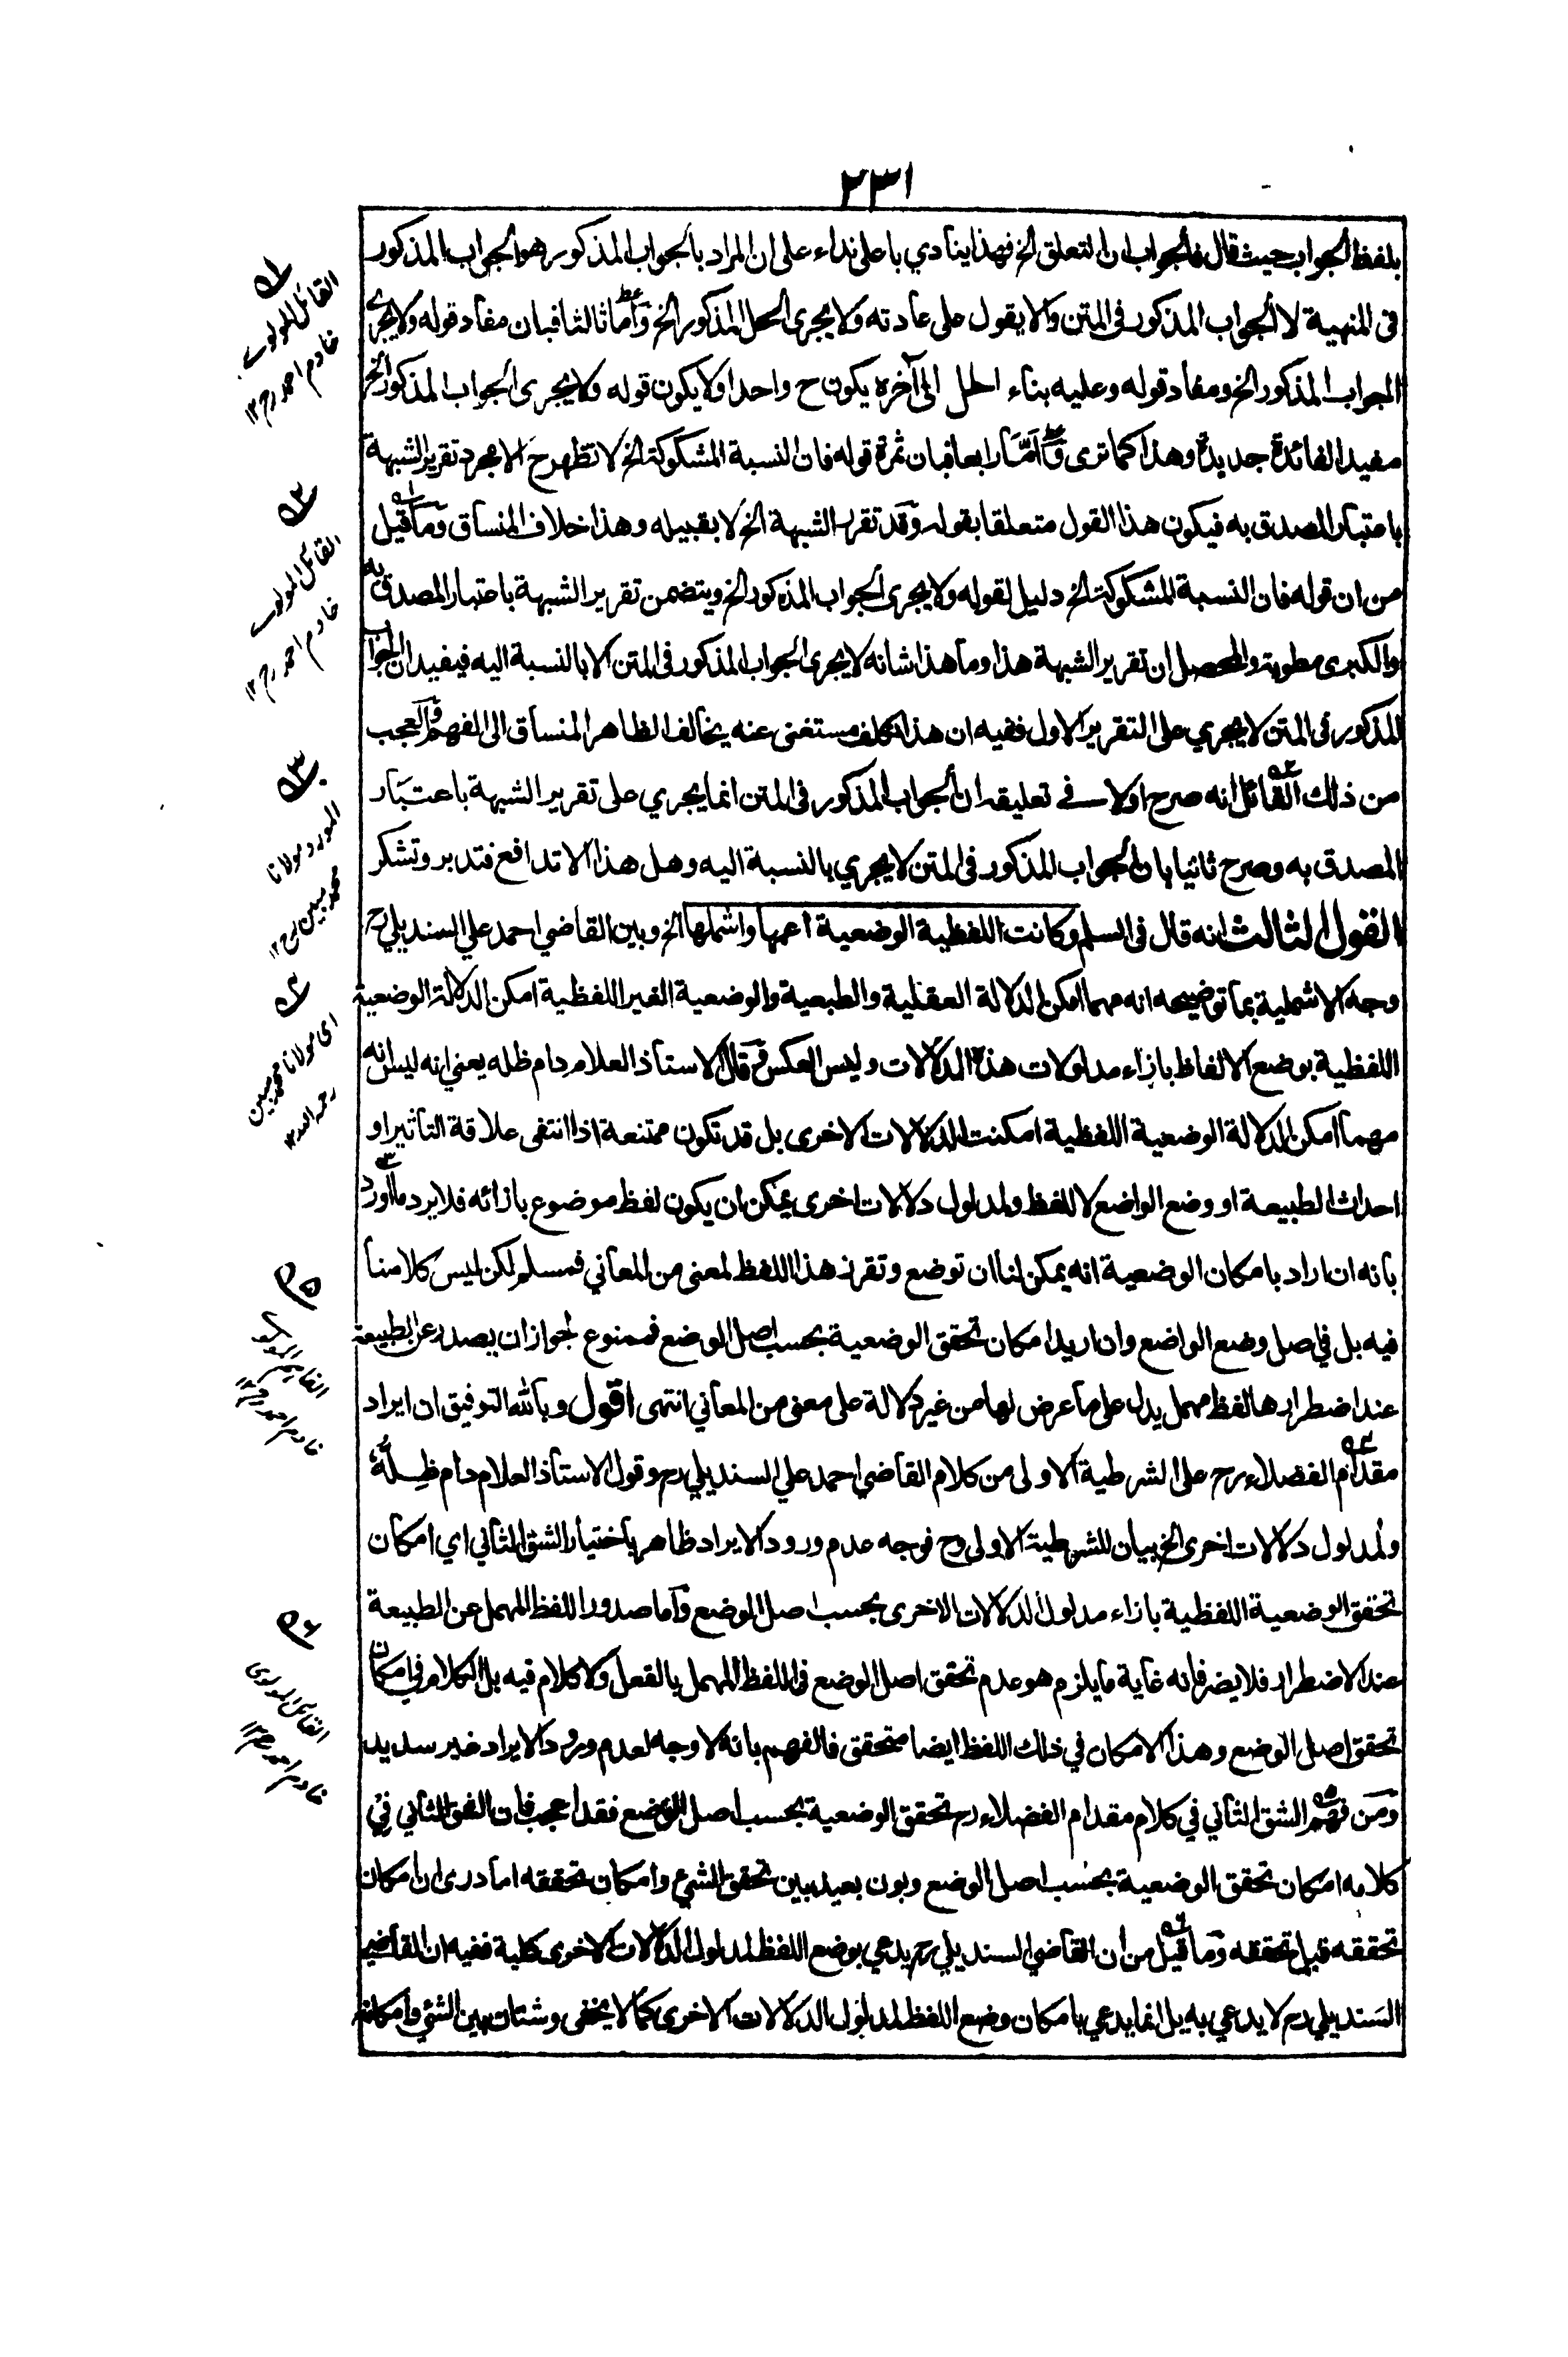 ٢٣١
بلفظ الجواب حيث قال فالجواب ان التعلق الخ فهذا ينادي باعلى نداء على ان المراد بالجواب المذكور هو الجواب المذكور
فى المنهية لا الجواب المذكور فى المتن والا يقول على عادته ولا يجرى الحل المذكور الخ واما ثالثا فبان مفاد قوله ولا يجرى
الجواب المذكور الخ ومفاد قوله وعليه بناء الحل الى آخره يكون ح واحدا ولا يكون قوله ولا يجرى الجواب المذكور الخ
مفيدا لفائدة جديدة وهذا كما ترى واما رابعا فبان ثمرة قوله فان النسبة المشكوكة الخ لا تظهر ح الا مجرد تقرير الشبهة
باعتبار المصدق به فيكون هذا القول متعلقا بقوله وقد تقرر الشبهة الخ لا بقبيله وهذا خلاف المنساق وما قيل
من ان قوله فان النسبة المشكوكة الخ دليل لقوله ولا يجرى الجواب المذكور الخ ويتضمن تقرير الشبهة باعتبار المصدق به
والكبرى مطوية والمحصل ان تقرير الشبهة هذا وما هذا شانه لا يجرى الجواب المذكور فى المتن الا بالنسبة اليه فيفيد ان الجواب
المذكور فى المتن لا يجري على التقرير الاول ففيه ان هذا تكلف مستغنى عنه يخالف الظاهر المنساق الى الفهم والعجب
من ذلك القائل انه صرح اولا في تعليقه ان الجواب المذكور فى المتن انما يجري على تقرير الشبهة باعتبار
المصدق به وصرح ثانيا بان الجواب المذكور فى المتن لا يجري بالنسبة اليه وهل هذا الا تدافع فتدبر وتشكر
القول الثالث انه قال فى السلم وكانت اللفظية الوضعية اعمها واشملها الخ وبين القاضي احمد علي السنديلي رح
وجه الاشملية بما توضيحه انه مهما امكن الدلالة العقلية والطبعية والوضعية الغير اللفظية امكن الدلالة الوضعية
اللفظية بوضع الالفاظ بازاء مدلولات هذه الدلالات وليس العكس قال الاستاذ العلام دام ظله يعني انه ليس انه
مهما امكن الدلالة الوضعية اللفظية امكنت الدلالات الاخرى بل قد تكون ممتنعة اذا انتفى علاقة التاثير او
احداث الطبيعة او وضع الواضع لا للفظ ولمدلول دلالات اخرى يمكن ان يكون لفظ موضوع بازائه فلا يرد ما اورد
بانه ان اراد بامكان الوضعية انه يمكن لنا ان توضع وتقرر هذا اللفظ لمعنى من المعاني فمسلم لكن ليس كلامنا
فيه بل في اصل وضع الواضع وان اريد امكان تحقق الوضعية بحسب اصل الوضع فممنوع لجواز ان يصدر عن الطبيعة
عند اضطرارها لفظ مهمل يدل على ما عرض لها من غير دلالة على معنى من المعاني انتهى اقول وبالله التوفيق ان ايراد
مقدام الفضلاء رح على الشرطية الاولى من كلام القاضي احمد علي السنديلي رح وقول الاستاذ العلام دام ظله
ولمدلول دلالات اخرى الخ بيان للشرطية الاولى رح فوجه عدم ورود الايراد ظاهر باختيار الشق الثاني اي امكان
تحقق الوضعية اللفظية بازاء مدلول الدلالات الاخرى بحسب اصل الوضع واما صدور اللفظ المهمل عن الطبيعة
عند الاضطرار فلا يضر فانه غاية ما يلزم هو عدم تحقق اصل الوضع فى اللفظ المهمل بالفعل ولا كلام فيه بل الكلام في امكان
تحقق اصل الوضع وهذا الامكان في ذلك اللفظ ايضا متحقق فالفهم بانه لا وجه لعدم ورود الايراد غير سديد
ومن فهم الشق الثاني في كلام مقدام الفضلاء رح تحقق الوضعية بحسب اصل الوضع فقد اعجب فان الشق الثاني في
كلامه امكان تحقق الوضعية بحسب اصل الوضع وبون بعيد بين تحقق الشيء وامكان تحققه اما درى ان امكان
تحققه قبل تحققه وما قيل من ان القاضي السنديلي رح يدعي بوضع اللفظ لمدلول الدلالات الاخرى كلية ففيه ان القاضي
السنديلي رح لا يدعي به بل انما يدعي بامكان وضع اللفظ لمدلول الدلالات الاخرى كما لا يخفى وشتان بين الشئ وامكانه
القائل المولوي
خادم احمد رح ١٢
القائل المولوي
خادم احمد رح ١٢
المورد مولانا
محمد مبين رح ١٢
اى مولانا محمد مبين
رحمه الله ١٢
الفاهم المولوي
خادم احمد رح ١٢
القائل المولوى
خادم احمد رح ١٢